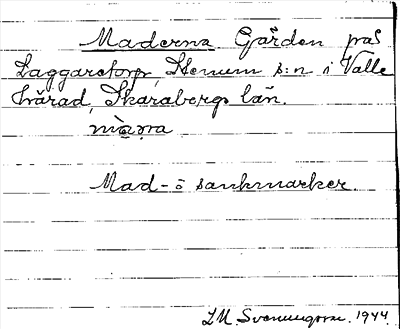 Maderna Gården på
Laggaretorp, Stenum s:n i Valle
härad, Skarabergs län.
Mad- o sankmarker.
Svenungsson. 1944.